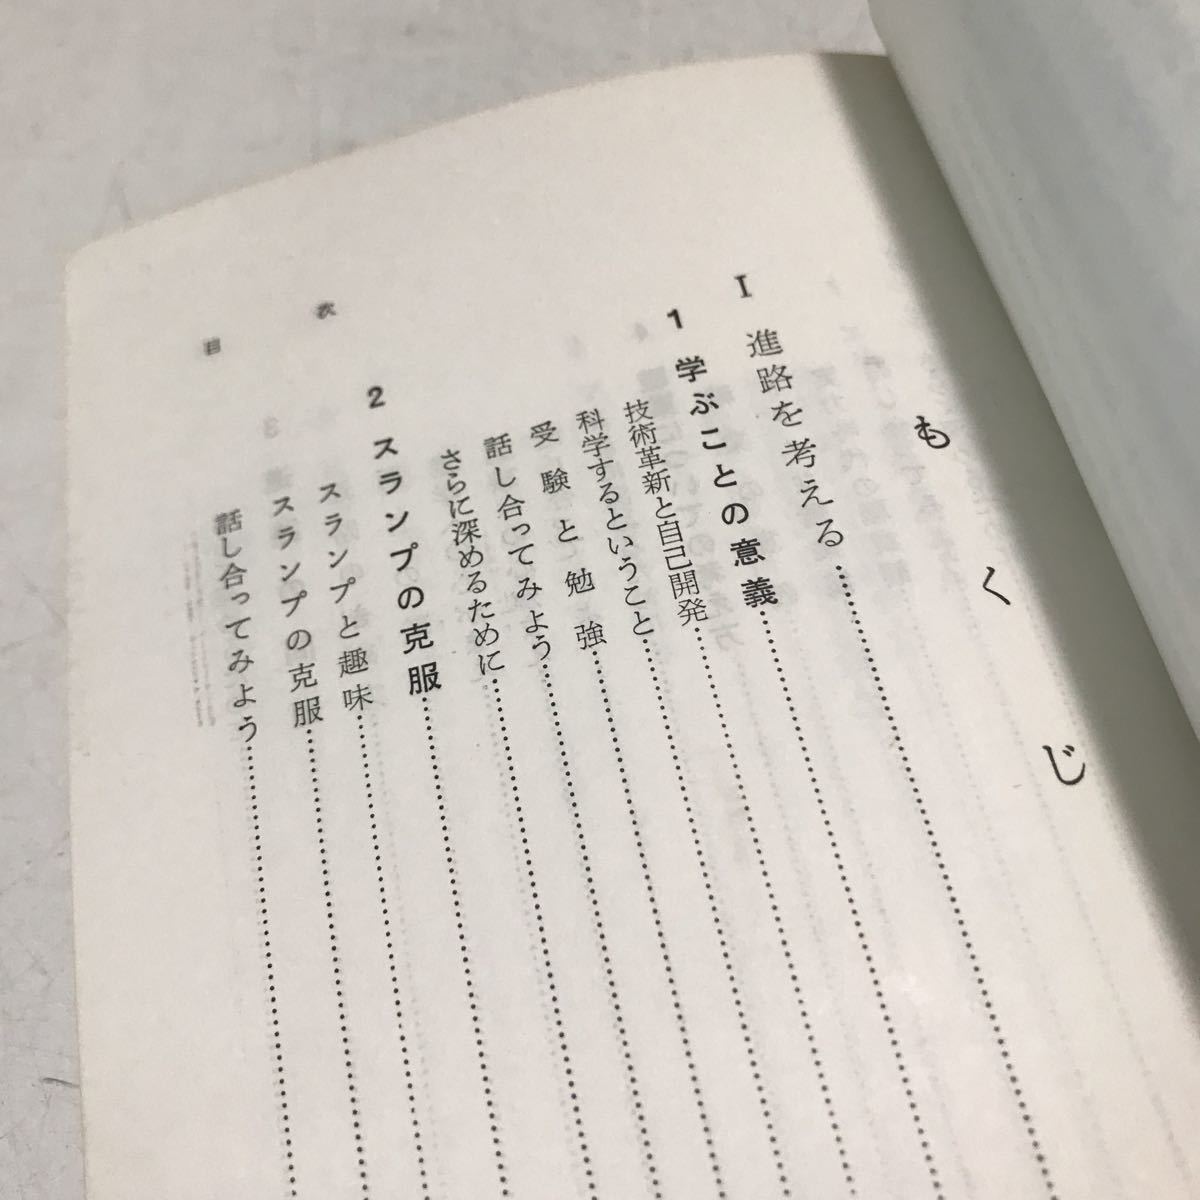 もくじ
I 進路を考える
1 学ぶことの意義
技術革新と自己開発
科学するということ
受験と勉強
話し合ってみよう
さらに深めるために
2 スランプの克服
スランプと趣味
スランプの克服
話し合ってみよう
目次